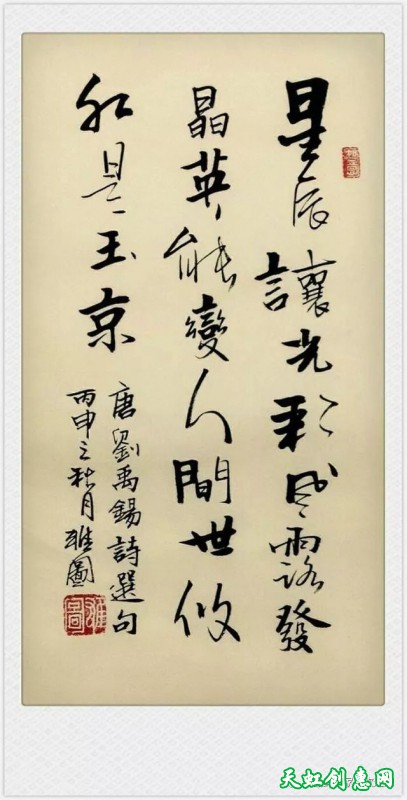 星辰讓光彩風露發
晶英能變人間世攸
然是玉京
唐劉禹錫詩選句
丙申之秋月雅圖
天虹创意网